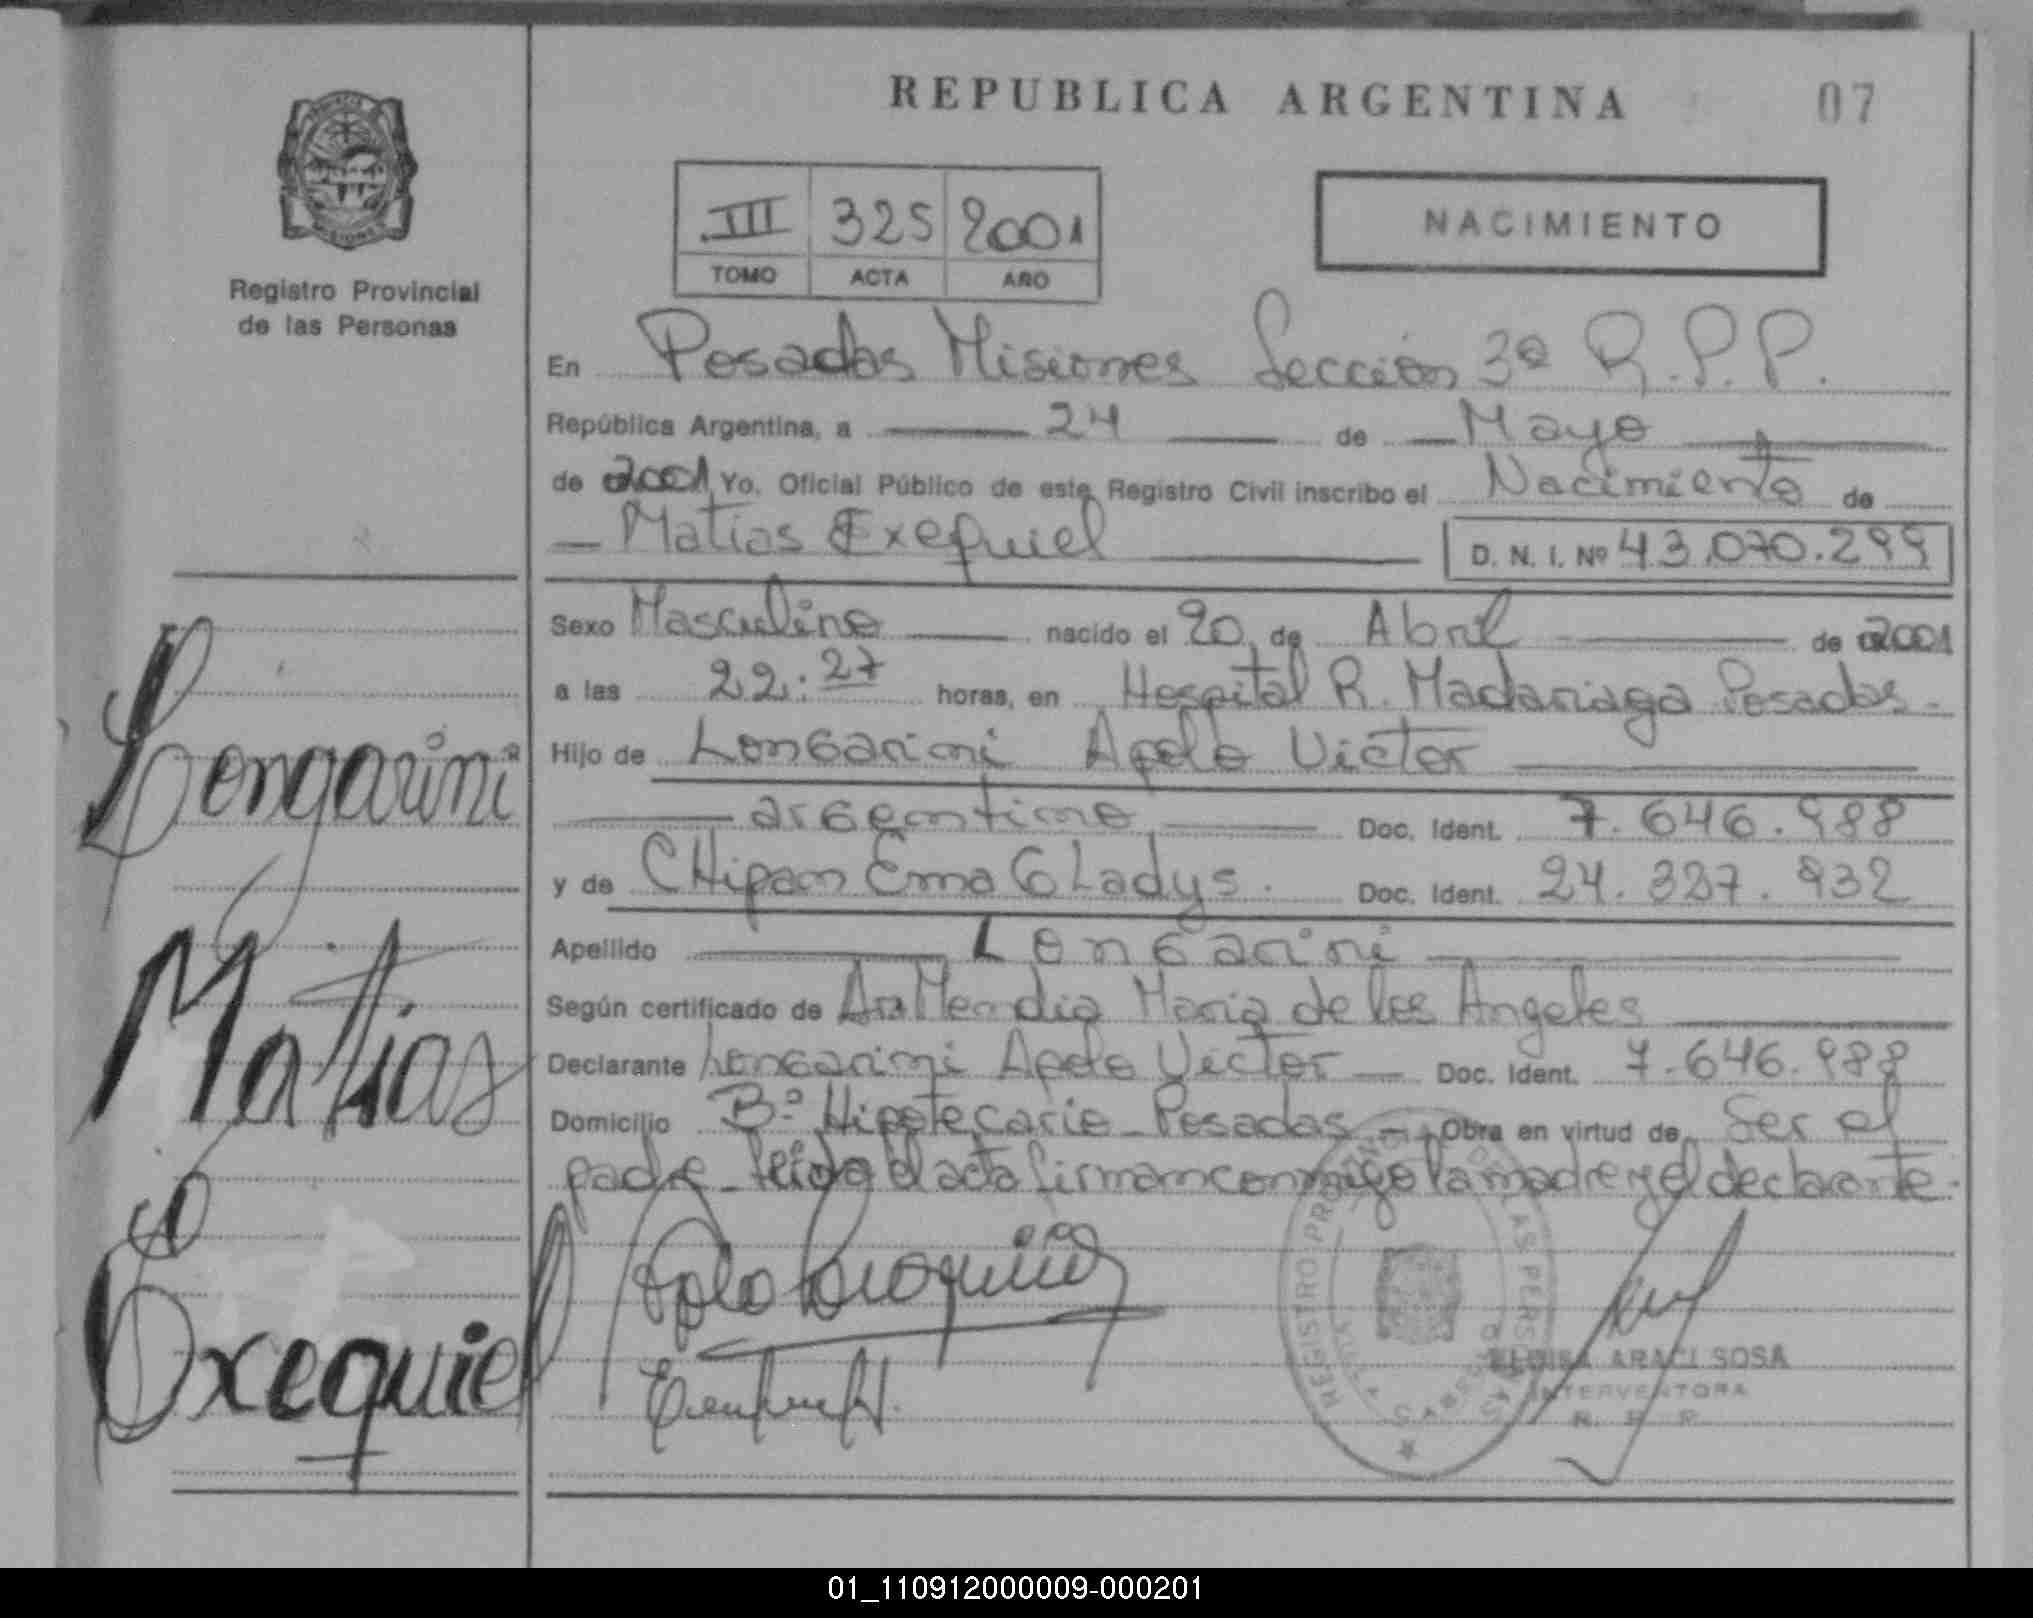 REPUBLICA ARGENTINA
07
MISIONES
Registro Provincial
de las Personas
III 325 2001
TOMO ACTA AÑO
NACIMIENTO
En Posadas Misiones Sección 3ª R.P.P.
República Argentina, a 24 de Mayo
de 2001 Yo, Oficial Público de este Registro Civil inscribo el Nacimiento de
Matias Exequiel D. N. I. Nº 43.070.299
Sexo Masculino nacido el 20 de Abril de 2001
a las 22:27 horas, en Hospital R. Madariaga Posadas.
Hijo de Longarini Apolo Victor
argentino Doc. Ident. 7.646.988
y de CHipan Ema GLadys. Doc. Ident. 24.327.932
Apellido Longarini
Según certificado de Maria de los Angeles
Declarante Longarini Apolo Victor Doc. Ident. 7.646.988
Domicilio Bº Hipotecario - Posadas - Obra en virtud de Ser el
padre - leida el acta firman conmigo la madre y el declarante.
Longarini
Matias
Exequiel
ELOISA ARACI SOSA
INTERVENTORA
R. P. P.
01_110912000009-000201